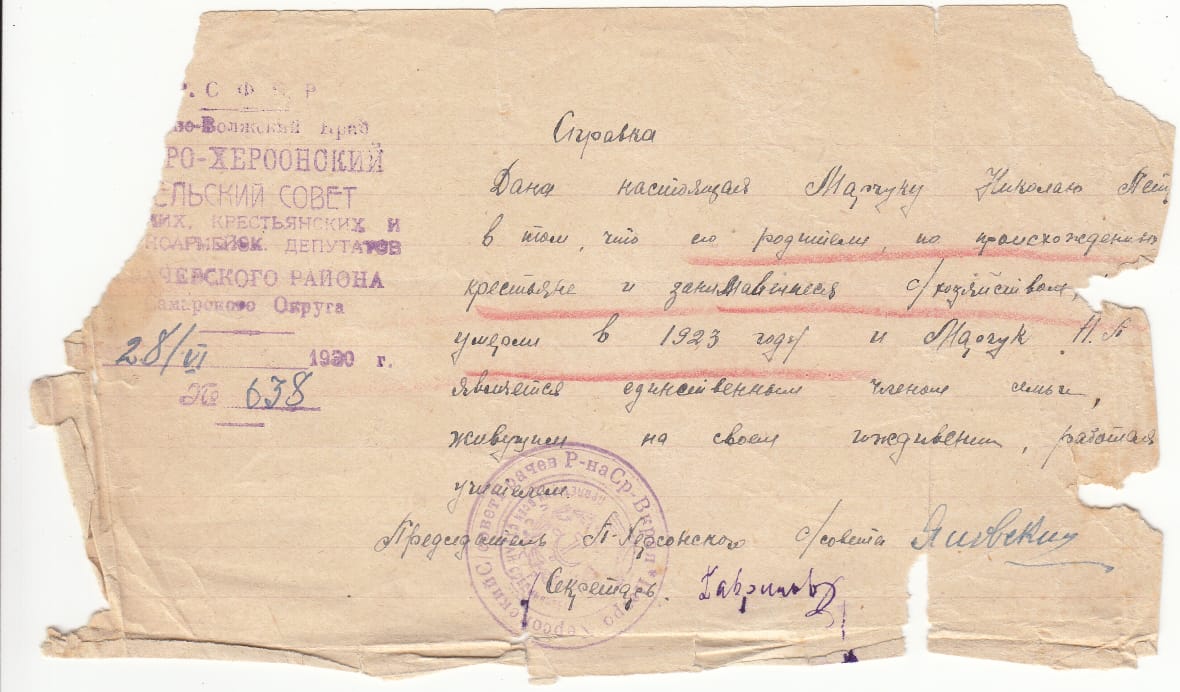 Р. С. Ф. С. Р
но-Волжский Край
РО-ХЕРСОНСКИЙ
ЕЛЬСКИЙ СОВЕТ
ЧИХ, КРЕСТЬЯНСКИХ И
НОАРМЕЙСК. ДЕПУТАТОВ
АЧЕВСКОГО РАЙОНА
Самарского Округа
28/VI 1930 г.
№ 638
Справка
Дана настоящая Марчуку Николаю Пет
в том, что его родители, по происхождению
крестьяне и занимавшиеся с/хозяйством,
умерли в 1923 году и Марчук Н. П
является единственным членом семьи,
живущим на своем иждивении, работая
учителем.
Председатель П-Херсонского с/совета
Секретарь